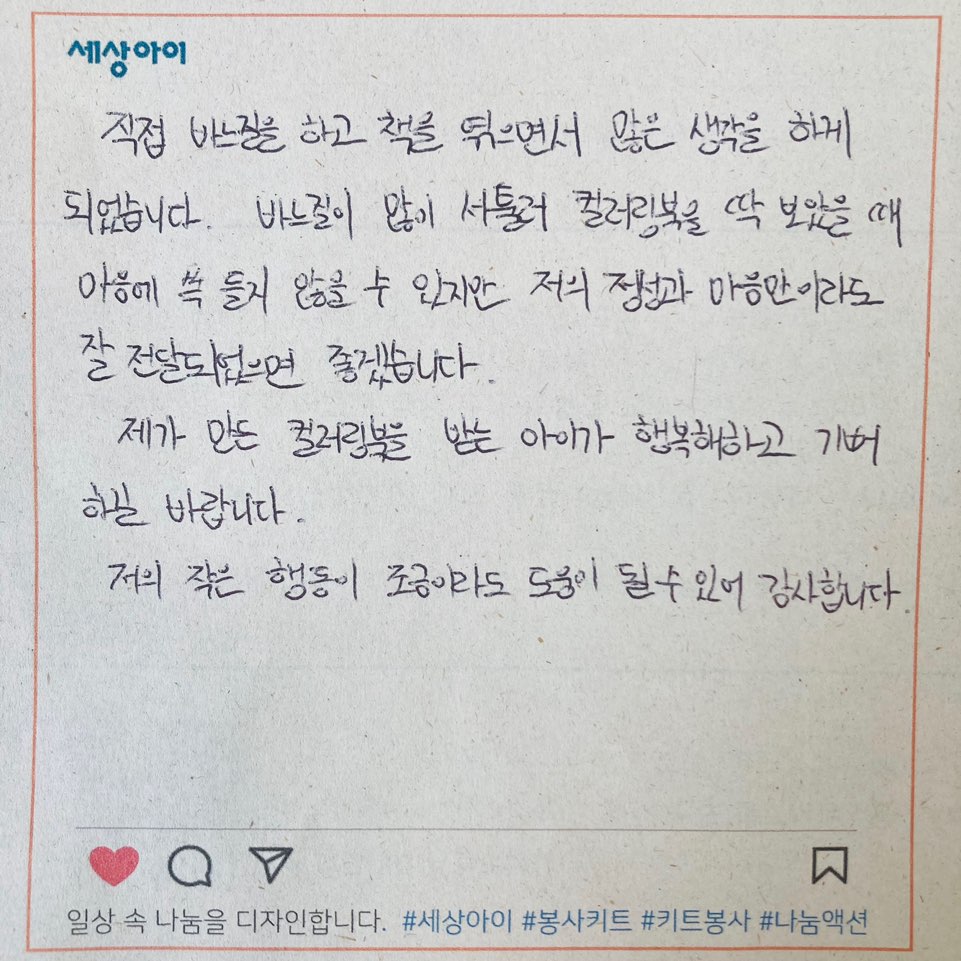 세상아이
직접 바느질을 하고 책을 엮으면서 많은 생각을 하게
되었습니다. 바느질이 많이 서툴러 컬러링북을 딱 보았을 때
마음에 쏙 들지 않을 수 있지만 저의 정성과 마음만이라도
잘 전달되었으면 좋겠습니다.
제가 만든 컬러링북을 받는 아이가 행복해하고 기뻐
하길 바랍니다.
저의 작은 행동이 조금이라도 도움이 될 수 있어 감사합니다.
일상 속 나눔을 디자인합니다. #세상아이 #봉사키트 #키트봉사 #나눔액션